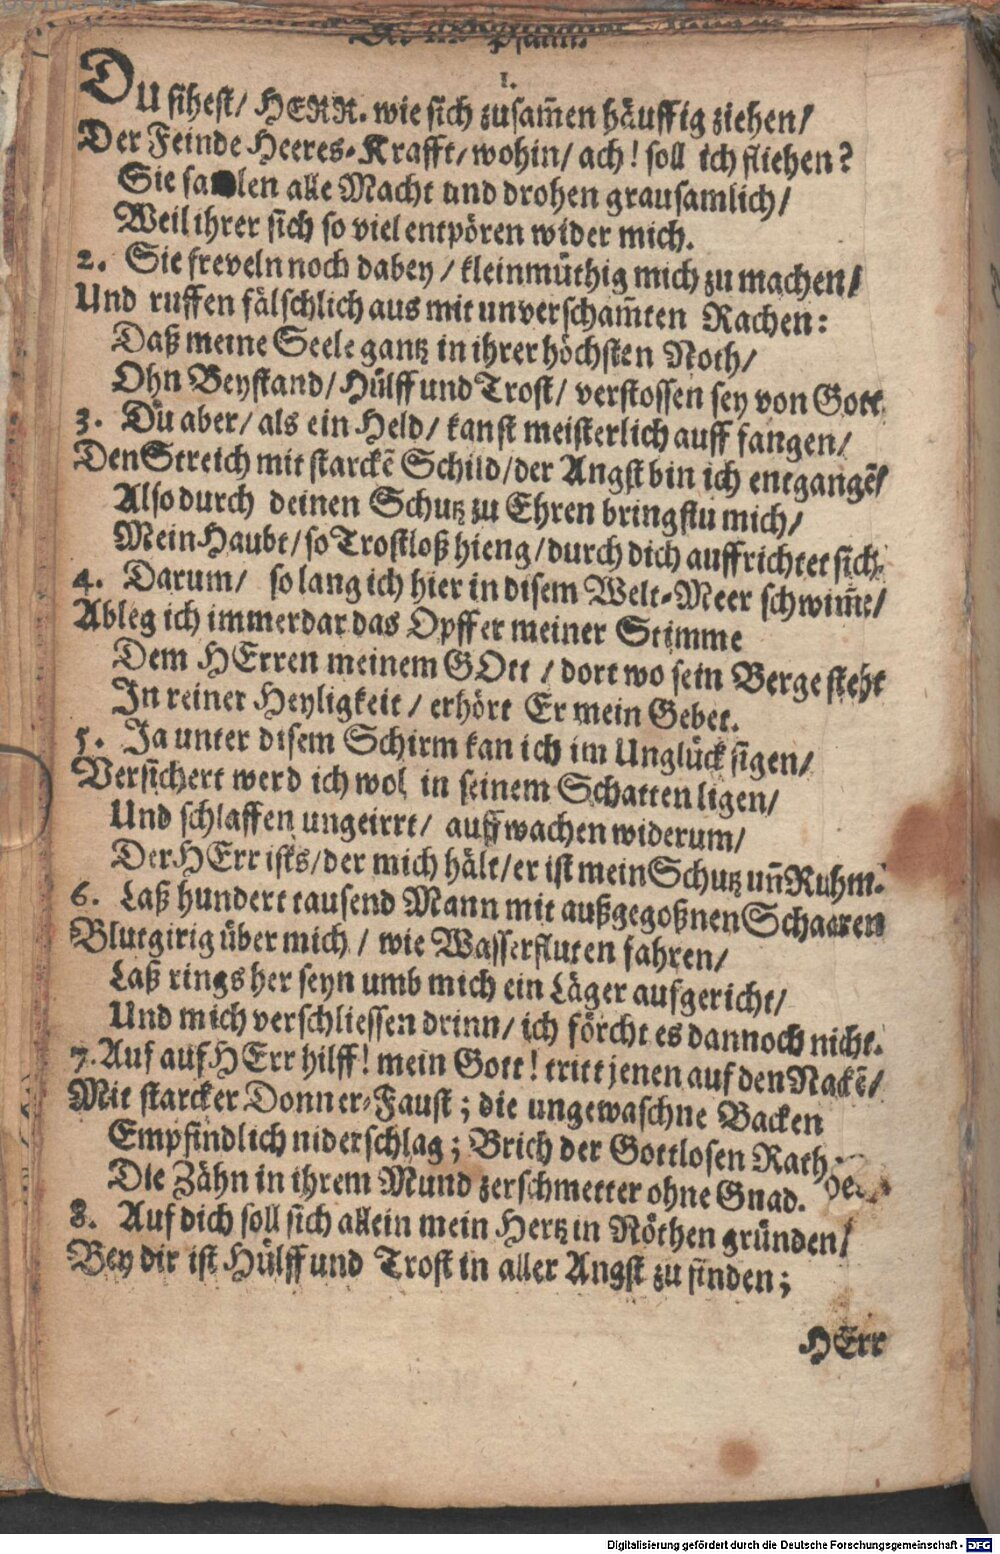 Psalm.
1.
DU sihest/ HERR. wie sich zusam̃en häuffig ziehen/
Der Feinde Heeres-Krafft/ wohin/ ach! soll ich fliehen?
Sie alle Macht und drohen grausamlich/
Weil ihrer sich so viel entpören wider mich.
2. Sie freveln noch dabey/ kleinmüthig mich zu machen/
Und ruffen fälschlich aus mit unverscham̃ten Rachen:
Daß meine Seele gantz in ihrer höchsten Noth/
Ohn Beystand/ Hülff und Trost/ verstossen sey von Gott
3. Du aber/ als ein Held/ kanst meisterlich auff fangen/
Den Streich mit starckẽ Schild/ der Angst bin ich entgangẽ/
Also durch deinen Schutz zu Ehren bringstu mich/
Mein Haubt/ so Trostloß hieng/ durch dich auffrichtet sich.
4. Darum/ so lang ich hier in disem Welt-Meer schwim̃e/
Ableg ich immerdar das Opffer meiner Stimme
Dem HErren meinem GOtt/ dort wo sein Berge steht
In reiner Heyligkeit/ erhört Er mein Gebet.
5. Ja unter disem Schirm kan ich im Unglück sigen/
Versichert werd ich wol in seinem Schatten ligen/
Und schlaffen ungeirrt/ auffwachen widerum/
Der HErr ists/ der mich hält/ er ist mein Schutz uñ Ruhm.
6. Laß hundert tausend Mann mit außgegoßnen Schaaren
Blutgirig über mich/ wie Wasserfluten fahren/
Laß rings her seyn umb mich ein Läger aufgericht/
Und mich verschliessen drinn/ ich förcht es dannoch nicht.
7. Auf auf HErr hilff! mein Gott! tritt jenen auf den Nackẽ/
Mit starcker Donner-Faust; die ungewaschne Backen
Empfindlich niderschlag; Brich der Gottlosen Rath
Die Zähn in ihrem Mund zerschmetter ohne Gnad.
8. Auf dich soll sich allein mein Hertz in Nöthen gründen/
Bey dir ist Hülff und Trost in aller Angst zu finden;
HErr
Digitalisierung gefördert durch die Deutsche Forschungsgemeinschaft - DFG